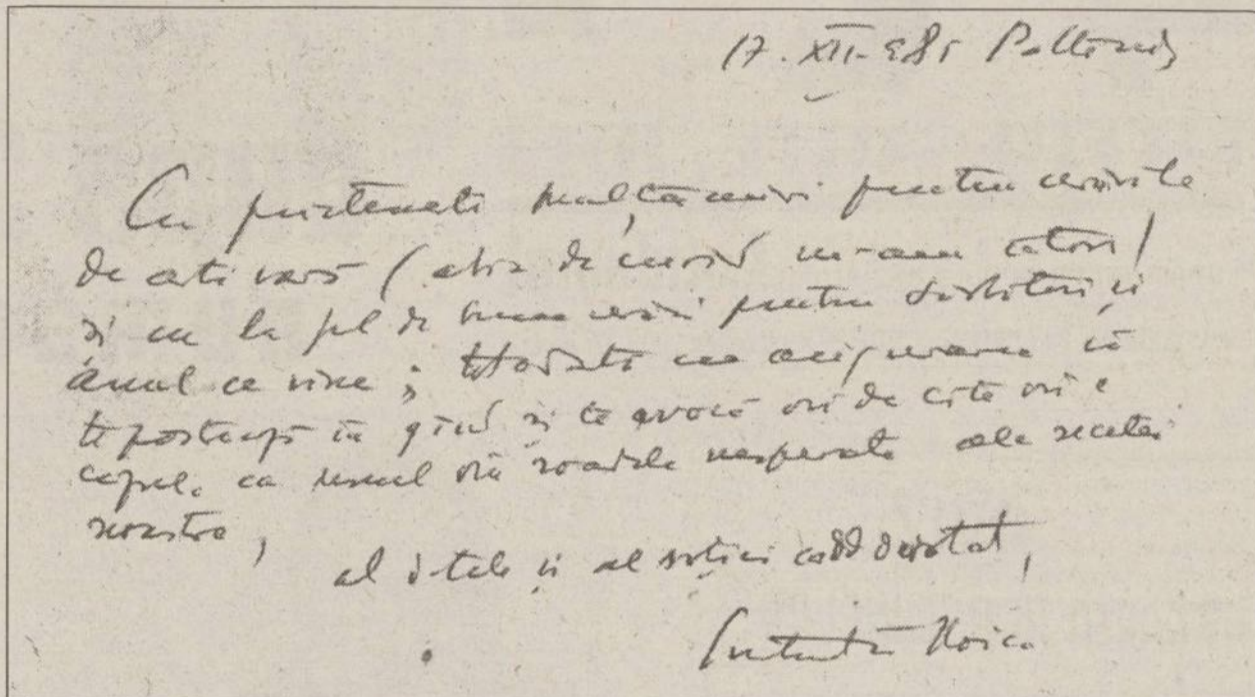 17. XII. 985 Păltiniș
Cu prietenești mulțămiri pentru urările
de astă vară (abia de curînd m-au )
și cu la fel de bune urări pentru sărbători și
anul ce vine; totodată cu asigurarea că
te port în gînd și te evoc ori de cîte ori e
ca unul din roadele nesperate ale secetei
noastre,
al d-tale și al soției cald devotat,
Constantin Noica